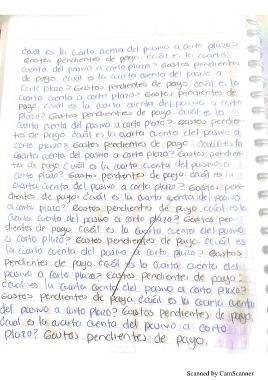 Cuál es la cuarta cuenta del pasivo a corto plazo?
Gastos pendientes de pago. cuál es la cuarta
cuenta del pasivo a corto plazo? Gastos pendientes
de pago. cuál es la cuarta cuenta del pasivo a
corto plazo? Gastos pendientes de pago. cuál es la
cuarta cuenta a corto plazo? Gastos pendientes de
pago. cuál es la cuarta cuenta del pasivo a corto
plazo? Gastos pendientes de pago. cuál es la
cuarta cuenta del pasivo a corto plazo? Gastos pendien-
tes de pago. cuál es la cuarta cuenta del pasivo a
corto plazo? Gastos pendientes de pago. cuál es la
cuarta cuenta del pasivo a corto plazo? Gastos pendien-
tes de pago cuál es la cuarta cuenta del pasivo a
corto plazo? Gastos pendientes de pago cuál es la
cuarta cuenta del pasivo a corto plazo? Gastos pen-
dientes de pago cuál es la cuarta cuenta del pasivo
a corto plazo? Gastos pendientes de pago cuál es la
cuarta cuenta del pasivo a corto plazo? Gastos pen-
dientes de pago cuál es la cuarta cuenta del pasivo
a corto plazo? Gastos pendientes de pago cuál es
la cuarta cuenta del pasivo a corto plazo? Gastos
pendientes de pago. cuál es la cuarta cuenta del
pasivo a corto plazo? Gastos pendientes de pago.
cuál es la cuarta cuenta del pasivo a corto plazo?
Gastos pendientes de pago cuál es la cuarta cuenta
del pasivo a corto plazo? Gastos pendientes de pago
cuál es la cuarta cuenta del pasivo a corto
plazo? Gastos pendientes de pago.
Scanned by CamScanner